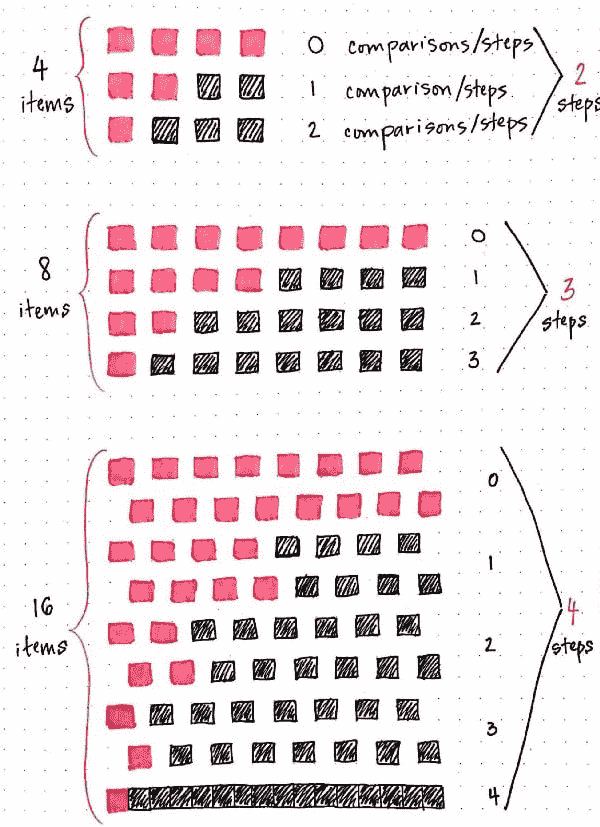 4
items
0 comparisons/steps
1 comparison/steps
2 comparisons/steps
2
steps
8
items
0
1
2
3
3
steps
16
items
0
1
2
3
4
4
steps